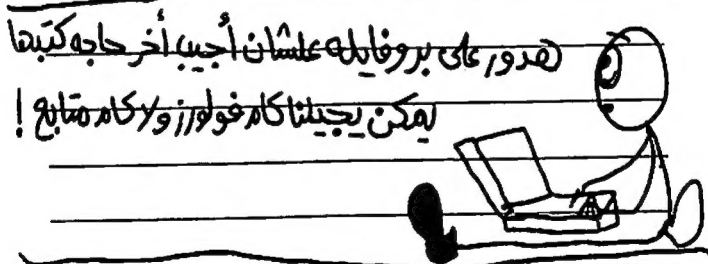 هدور على بروفايله علشان أجيب أخر حاجه كتبها
يمكن يجيلنا كام فولورز ولا كام متابع !